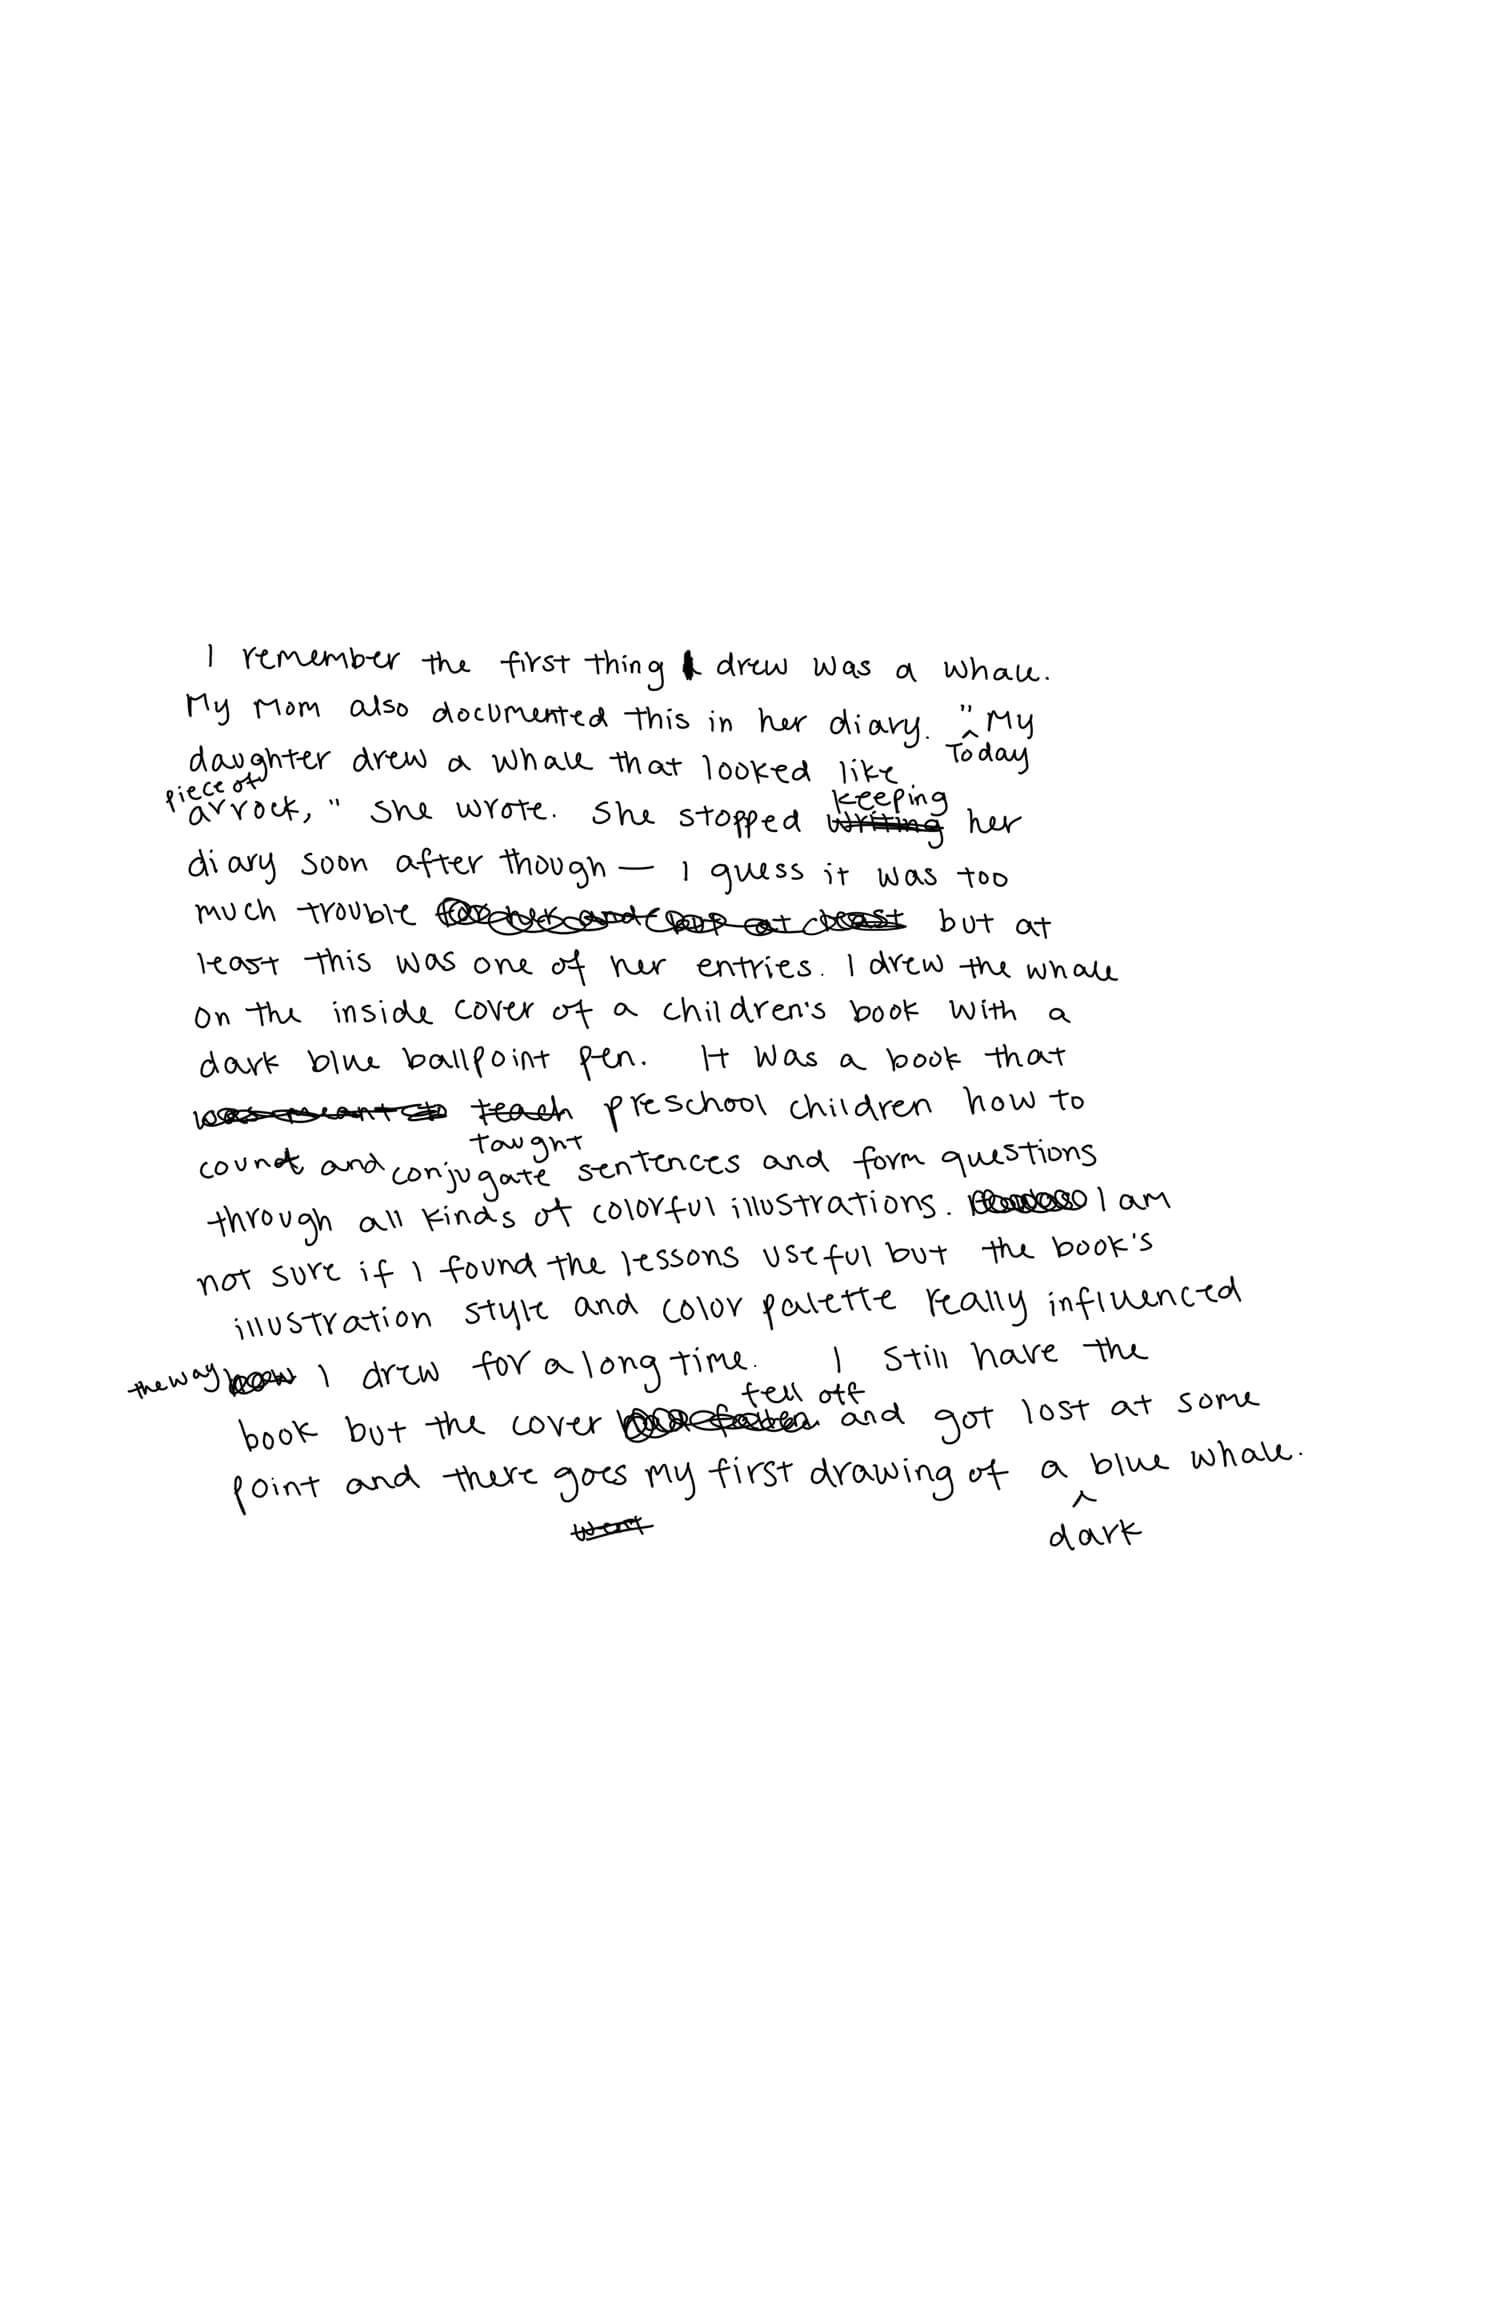 I remember the first thing I drew was a whale.
My Mom also documented this in her diary. "My
Today
daughter drew a whale that looked like
piece of
a rrock," she wrote. She stopped writing her
keeping
diary soon after though — I guess it was too
much trouble for her and but at least but at
least this was one of her entries. I drew the whale
on the inside cover of a children's book with a
dark blue ballpoint pen. It was a book that
was meant to teach preschool children how to
taught
count and conjugate sentences and form questions
through all kinds of colorful illustrations. I am
not sure if I found the lessons useful but the book's
illustration style and color palette really influenced
the way how I drew for a long time. I still have the
fell off
book but the cover had fallen and got lost at some
point and there goes my first drawing of a blue whale.
went
dark